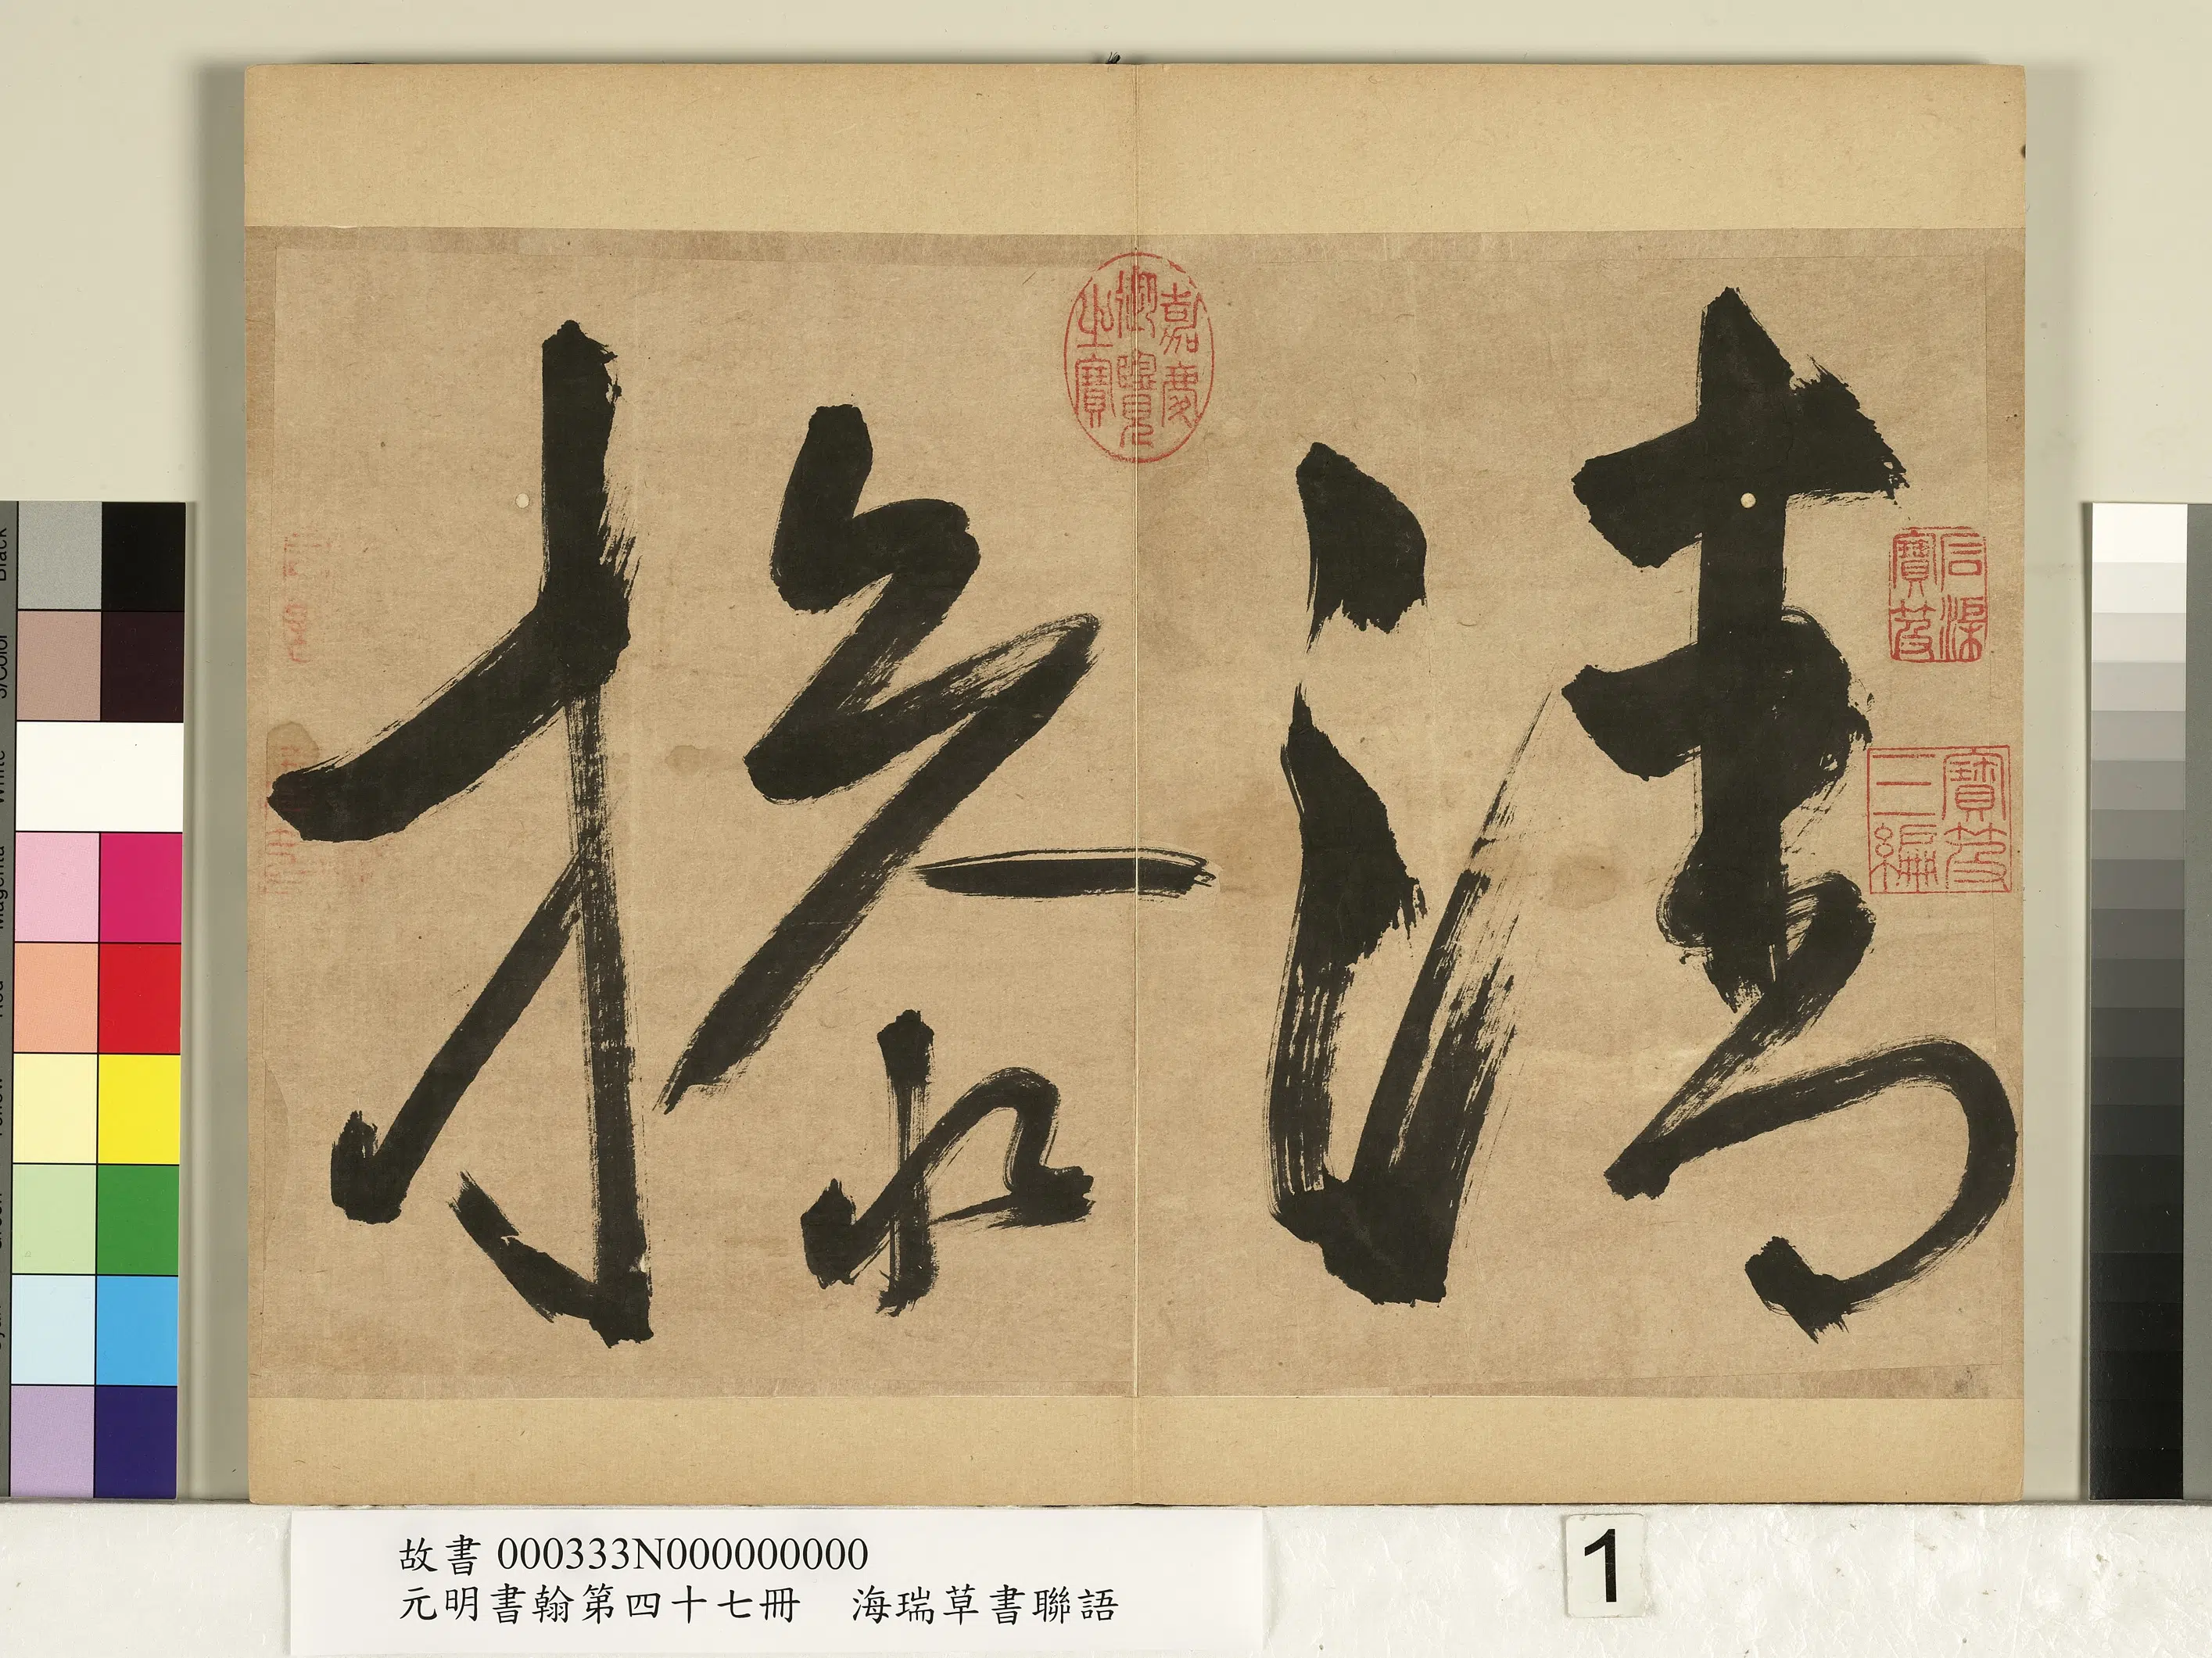 清
石渠
寶笈
寶笈
三編
嘉慶
御覽
之寶
故書 000333N000000000
元明書翰第四十七冊 海瑞草書聯語
1